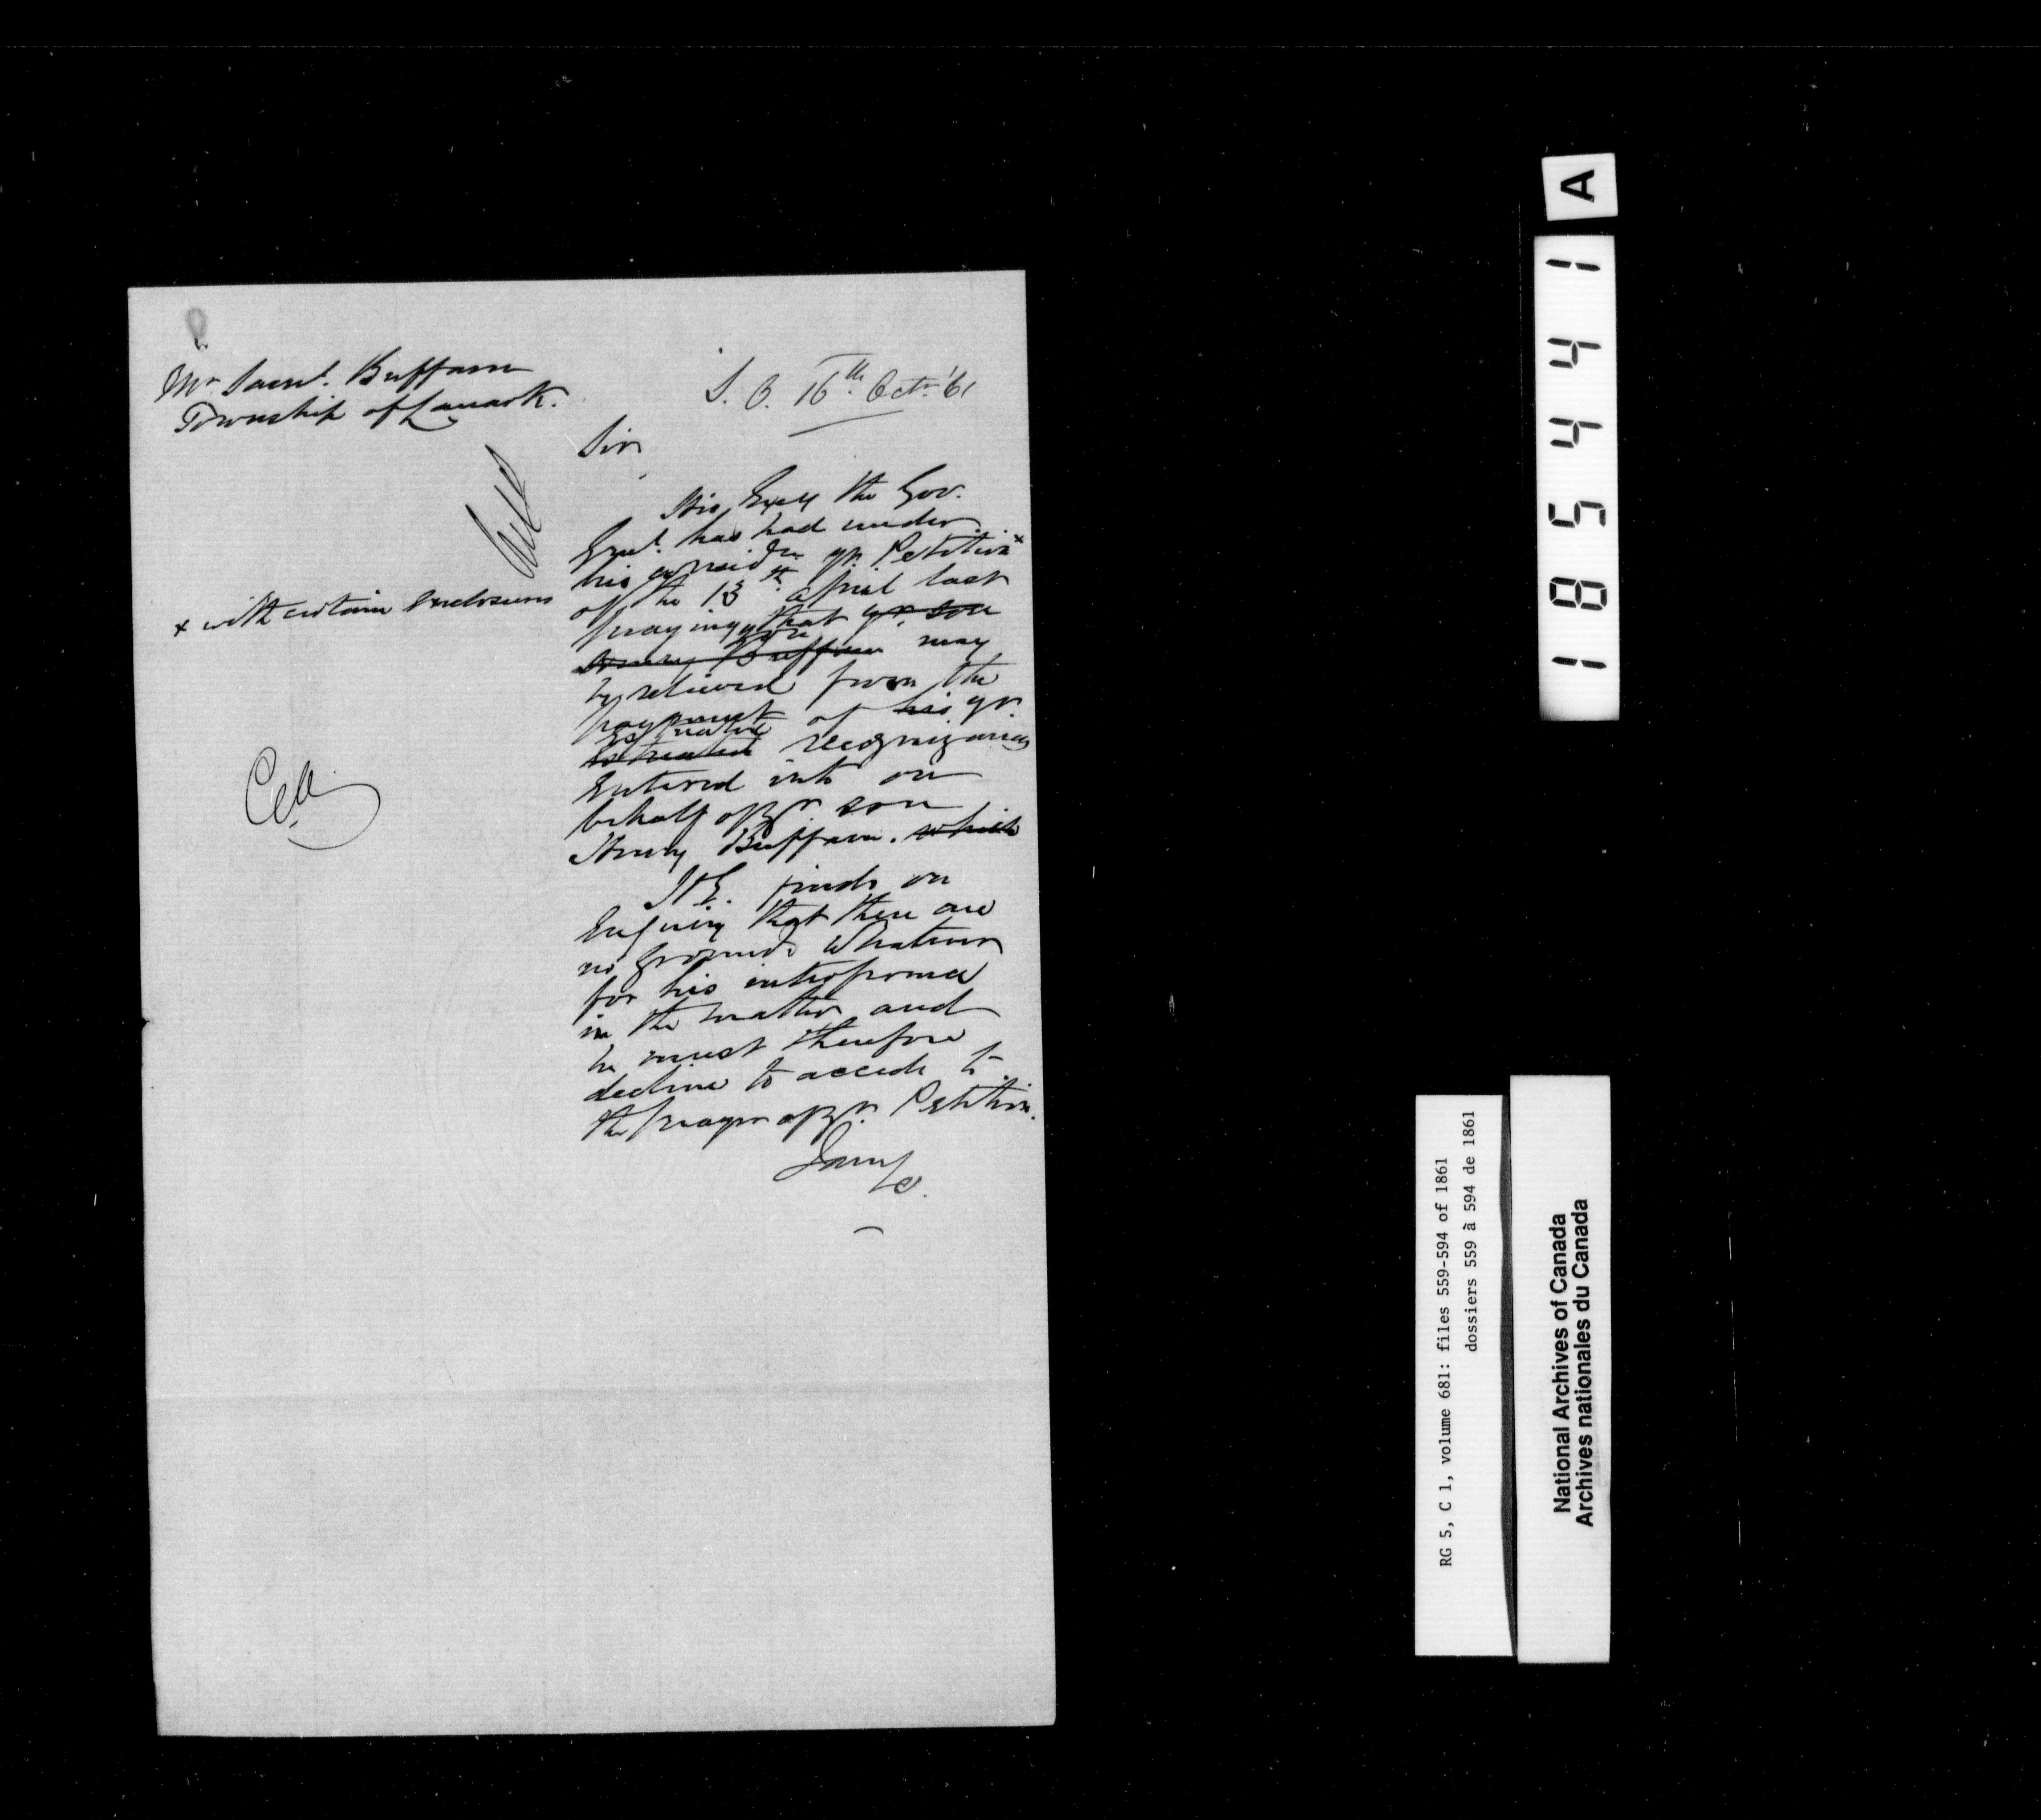 Mr Saml. Buffam
Township of Lanark.
S. O. 16th Octr. '61
Sir
His Excy the Gov.
Genl. has had under
his considn yr. Petition x
x with certain enclosures
of the 13th April last
praying that yr. son
you
Henry Buffam may
be relieved from the
payment of his yr.
Estreated
Estreated recognizances
Entered into on
behalf of yr. son
Henry Buffam. which
H. E. finds on
Enquiry that there are
no grounds whatever
for his interference
in the matter and
he must therefore
decline to accede to
the prayer of yr. Petition.
I am
&c.
A
185441
RG 5, C 1, volume 681: files 559-594 of 1861
dossiers 559 à 594 de 1861
National Archives of Canada
Archives nationales du Canada